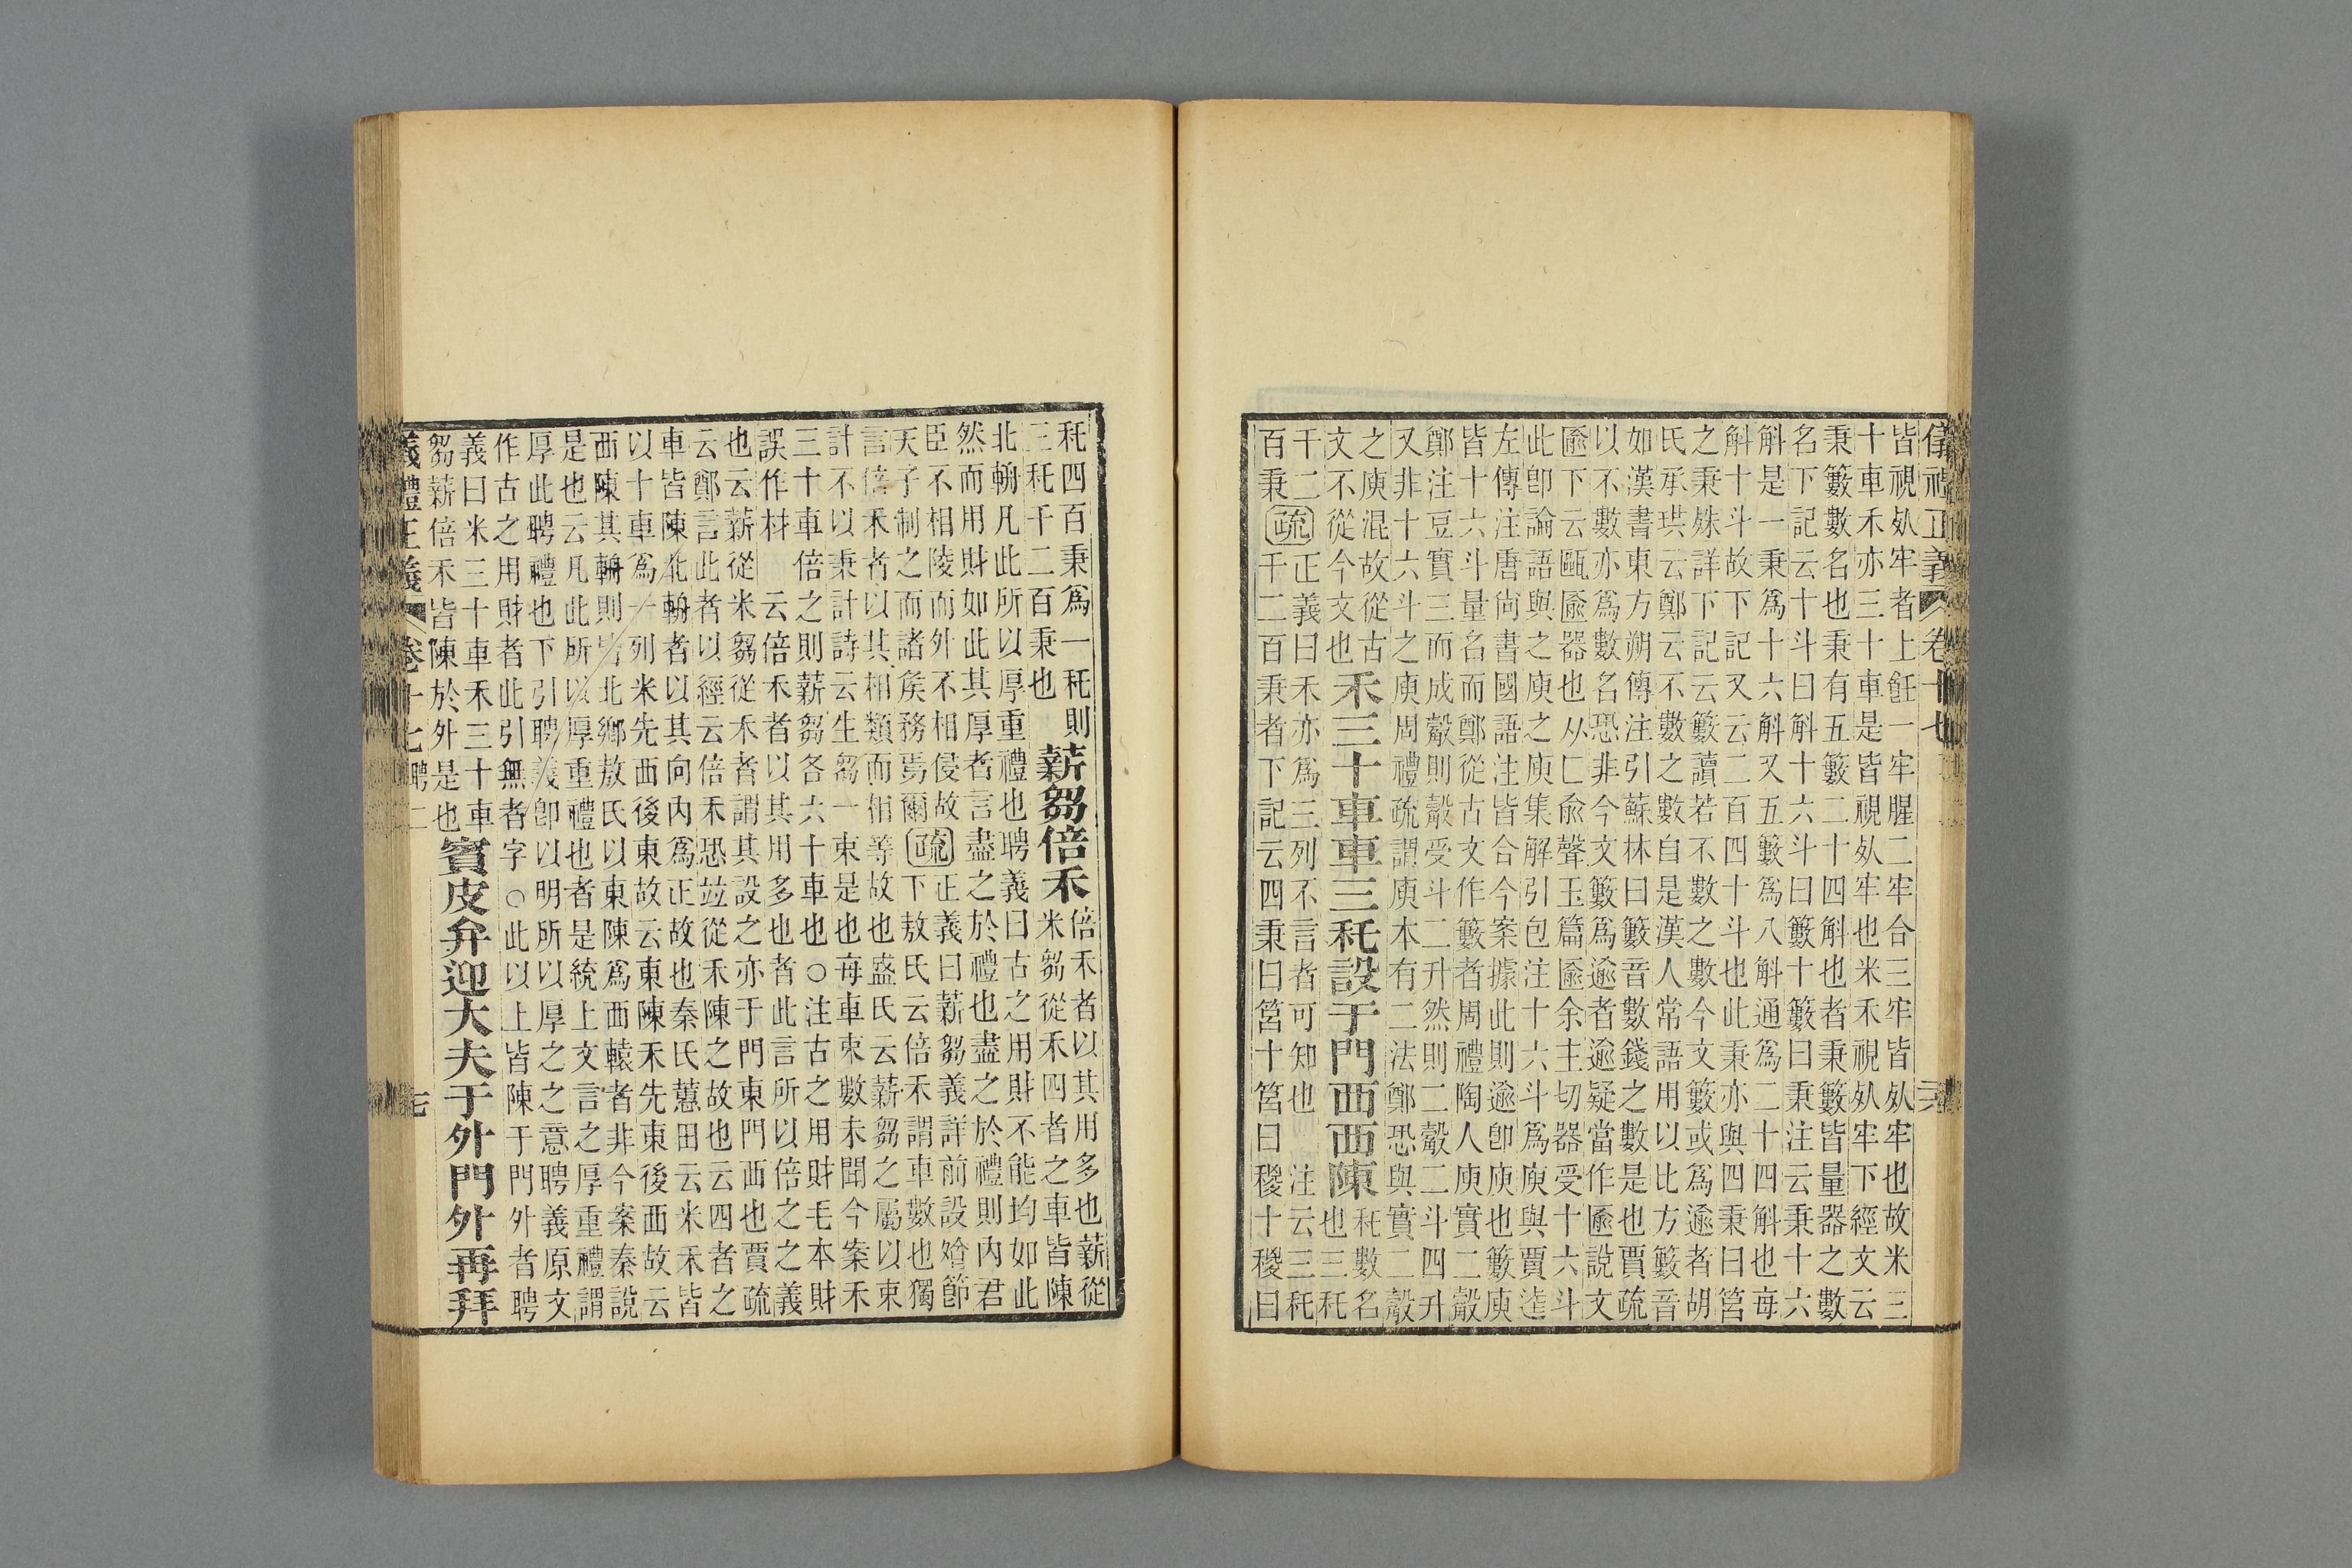 儀禮正義 卷十七
皆視死牢者上飪一牢腥二牢合三牢皆死牢也故米三
十車禾亦三十車是皆視死牢也米禾視死牢下經文云
秉籔數名也秉有五籔二十四斛也者秉籔皆量器之數
名下記云十斗曰斛十六斗曰籔十籔曰秉注云秉十六
斛是一秉爲十六斛又五籔爲八斛通爲二十四斛也每
斛十斗故下記又云二百四十斗也此秉亦與四秉曰筥
之秉殊詳下記云籔讀若不數之數今文籔或爲逾者胡
氏承珙云鄭云不數之數自是漢人常語用以比方籔音
如漢書東方朔傳注引蘇林曰籔音數錢之數是也賈疏
以不數亦爲數名恐非今文籔爲逾者逾疑當作匬說文
匬下云甌匬器也从匚俞聲玉篇匬余主切器受十六斗
此卽論語與之庾之庾集解引包注十六斗爲庾與賈逵
左傳注唐尙書國語注皆合今案據此則逾卽庾也籔庾
皆十六斗量名而鄭從古文作籔者周禮陶人庾實二觳
鄭注豆實三而成觳則觳受斗二升然則二觳二斗四升
又非十六斗之庾周禮疏謂庾本有二法鄭恐與實二觳
之庾混故從古
文不從今文也
禾三十車車三秅設于門西西陳
秅數名
也三秅
千二
百秉
疏
正義曰禾亦爲三列不言者可知也 注云三秅
千二百秉者下記云四秉曰筥十筥曰稯十稯曰
秅四百秉爲一秅則
三秅千二百秉也
薪芻倍禾
倍禾者以其用多也薪從
米芻從禾四者之車皆陳
北輈凡此所以厚重禮也聘義曰古之用財不能均如此
然而用財如此其厚者言盡之於禮也盡之於禮則內君
臣不相陵而外不相侵故
天子制之而諸矦務焉爾
疏
正義曰薪芻義詳前設飧節
下敖氏云倍禾謂車數也獨
言倍禾者以其相類而相等故也盛氏云薪芻之屬以束
計不以秉計詩云生芻一束是也每車束數未聞今案禾
三十車倍之則薪芻各六十車也○注古之用財毛本財
誤作材 云倍禾者以其用多也者此言所以倍之之義
也云薪從米芻從禾者謂其設之亦于門東門西也賈疏
云鄭言此者以經云倍禾恐竝從禾陳之故也云四者之
車皆陳北輈者以其向內爲正故也秦氏蕙田云米禾皆
以十車爲一列米先西後東故云東陳禾先東後西故云
西陳其輈則皆北鄉敖氏以東陳爲西轅者非今案秦說
是也云凡此所以厚重禮也者是統上文言之厚重禮謂
厚此聘禮也下引聘義卽以明所以厚之之意聘義原文
作古之用財者此引無者字○此以上皆陳于門外者聘
義曰米三十車禾三十車
芻薪倍禾皆陳於外是也
賓皮弁迎大夫于外門外再拜
義禮正義 卷十七 聘二